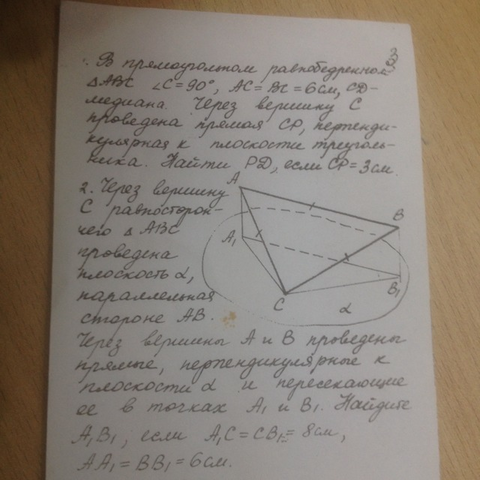 3
1. В прямоугольном равнобедренном
ΔABC ∠C=90°, AC=BC=6см, CD-
медиана. Через вершину C
проведена прямая CP, перпенди-
кулярная к плоскости треуголь-
ника. Найти PD, если CP=3см.
2. Через вершину
C равносторон-
него Δ ABC
проведена
плоскость α,
параллельная
стороне AB.
A
B
A₁
B₁
C
α
Через вершины A и B проведены
прямые, перпендикулярные к
плоскости α и пересекающие
ее в точках A₁ и B₁. Найдите
A₁B₁, если A₁C=CB₁=8см,
AA₁=BB₁=6см.